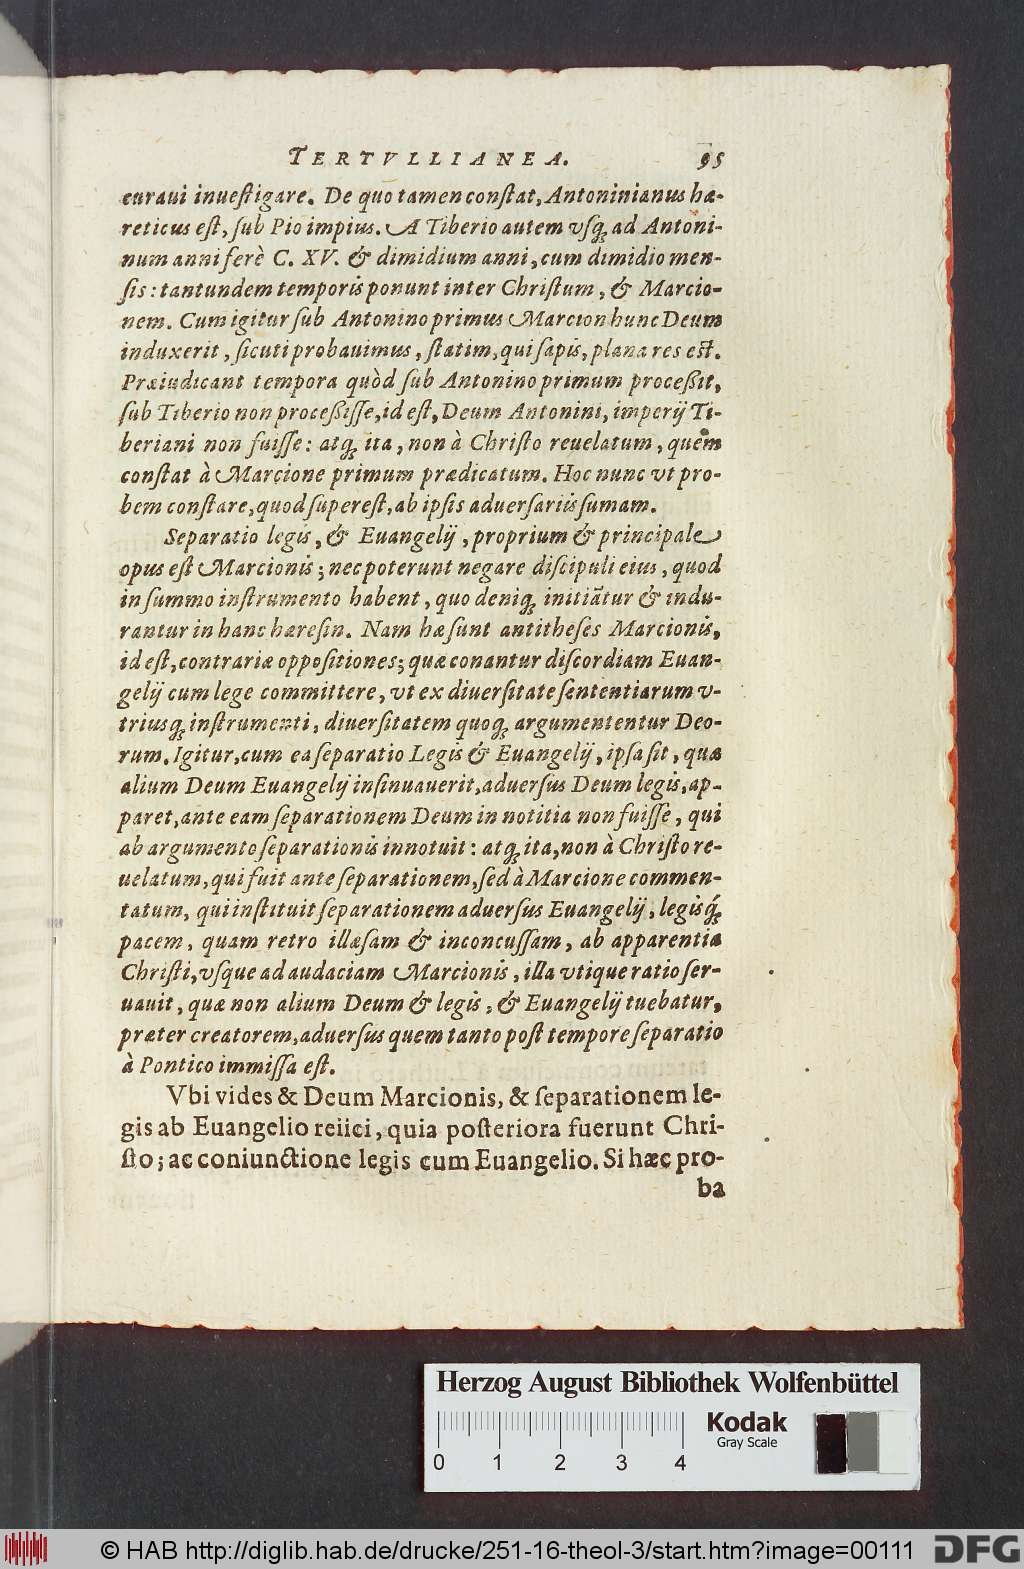 TERTVLLIANEA. 95
curaui inueſtigare. De quo tamen conſtat, Antoninianus hæ-
reticus eſt, ſub Pio impius. A Tiberio autem vſq; ad Antoni-
num anni ferè C. XV. & dimidium anni, cum dimidio men-
ſis: tantundem temporis ponunt inter Chriſtum, & Marcio-
nem. Cum igitur ſub Antonino primus Marcion hunc Deum
induxerit, ſicuti probauimus, ſtatim, qui ſapis, plana res eſt.
Præiudicant tempora quòd ſub Antonino primum proceßit,
ſub Tiberio non proceßiſſe, id eſt, Deum Antonini, imperij Ti-
beriani non fuiſſe: atq; ita, non à Chriſto reuelatum, quem
conſtat à Marcione primum prædicatum. Hoc nunc vt pro-
bem conſtare, quod ſupereſt, ab ipſis aduerſariis ſumam.
Separatio legis, & Euangelij, proprium & principale
opus eſt Marcionis; nec poterunt negare diſcipuli eius, quod
in ſummo inſtrumento habent, quo deniq; initiãtur & indu-
rantur in hanc hæreſin. Nam hæ ſunt antitheſes Marcionis,
id eſt, contrariæ oppoſitiones; quæ conantur diſcordiam Euan-
gelij cum lege committere, vt ex diuerſitate ſententiarum v-
triusq; inſtrumenti, diuerſitatem quoq; argumententur Deo-
rum. Igitur, cum ea ſeparatio Legis & Euangelij, ipſa ſit, quæ
alium Deum Euangelij inſinuauerit, aduerſus Deum legis, ap-
paret, ante eam ſeparationem Deum in notitia non fuiſſe, qui
ab argumento ſeparationis innotuit: atq; ita, non à Chriſto re-
uelatum, qui fuit ante ſeparationem, ſed à Marcione commen-
tatum, qui inſtituit ſeparationem aduerſus Euangelij, legisq́;
pacem, quam retro illæſam & inconcuſſam, ab apparentia
Chriſti, vſque ad audaciam Marcionis, illa vtique ratio ſer-
uauit, quæ non alium Deum & legis, & Euangelij tuebatur,
præter creatorem, aduerſus quem tanto poſt tempore ſeparatio
à Pontico immiſſa eſt.
Vbi vides & Deum Marcionis, & ſeparationem le-
gis ab Euangelio reiici, quia poſteriora fuerunt Chri-
ſto; ac coniunctione legis cum Euangelio. Si hæc pro-
ba
Herzog August Bibliothek Wolfenbüttel
Kodak
Gray Scale
0 1 2 3 4
© HAB http://diglib.hab.de/drucke/251-16-theol-3/start.htm?image=00111
DFG